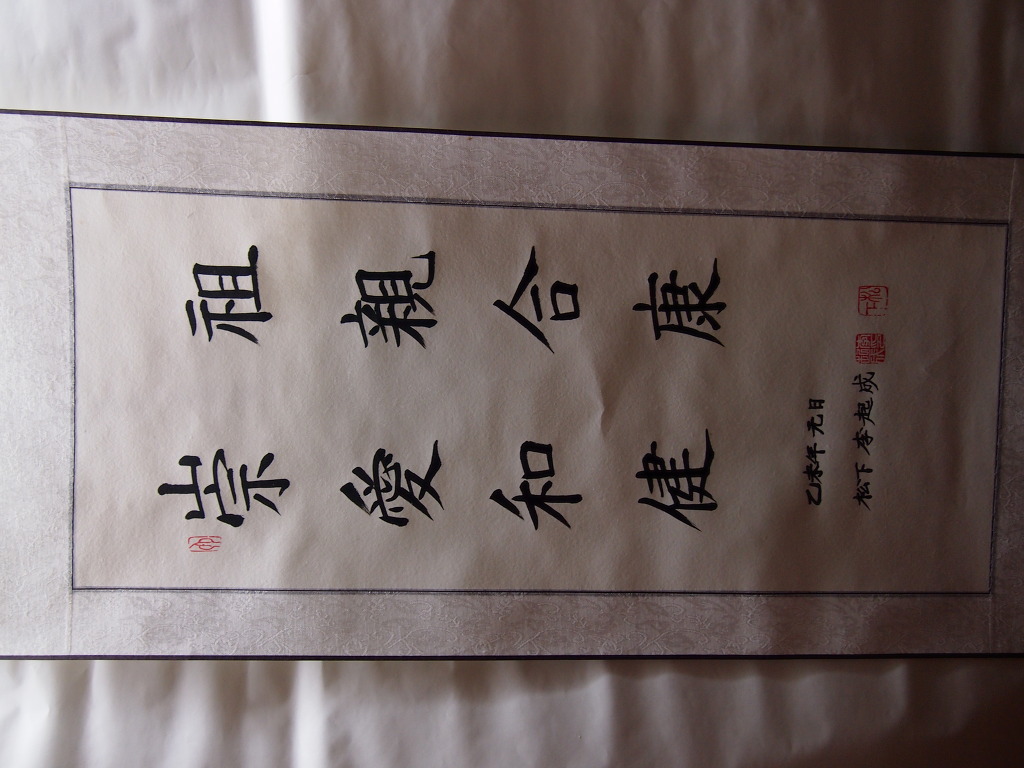 崇祖
愛親
和合
健康
乙未年 元日
松下 李起成
松下